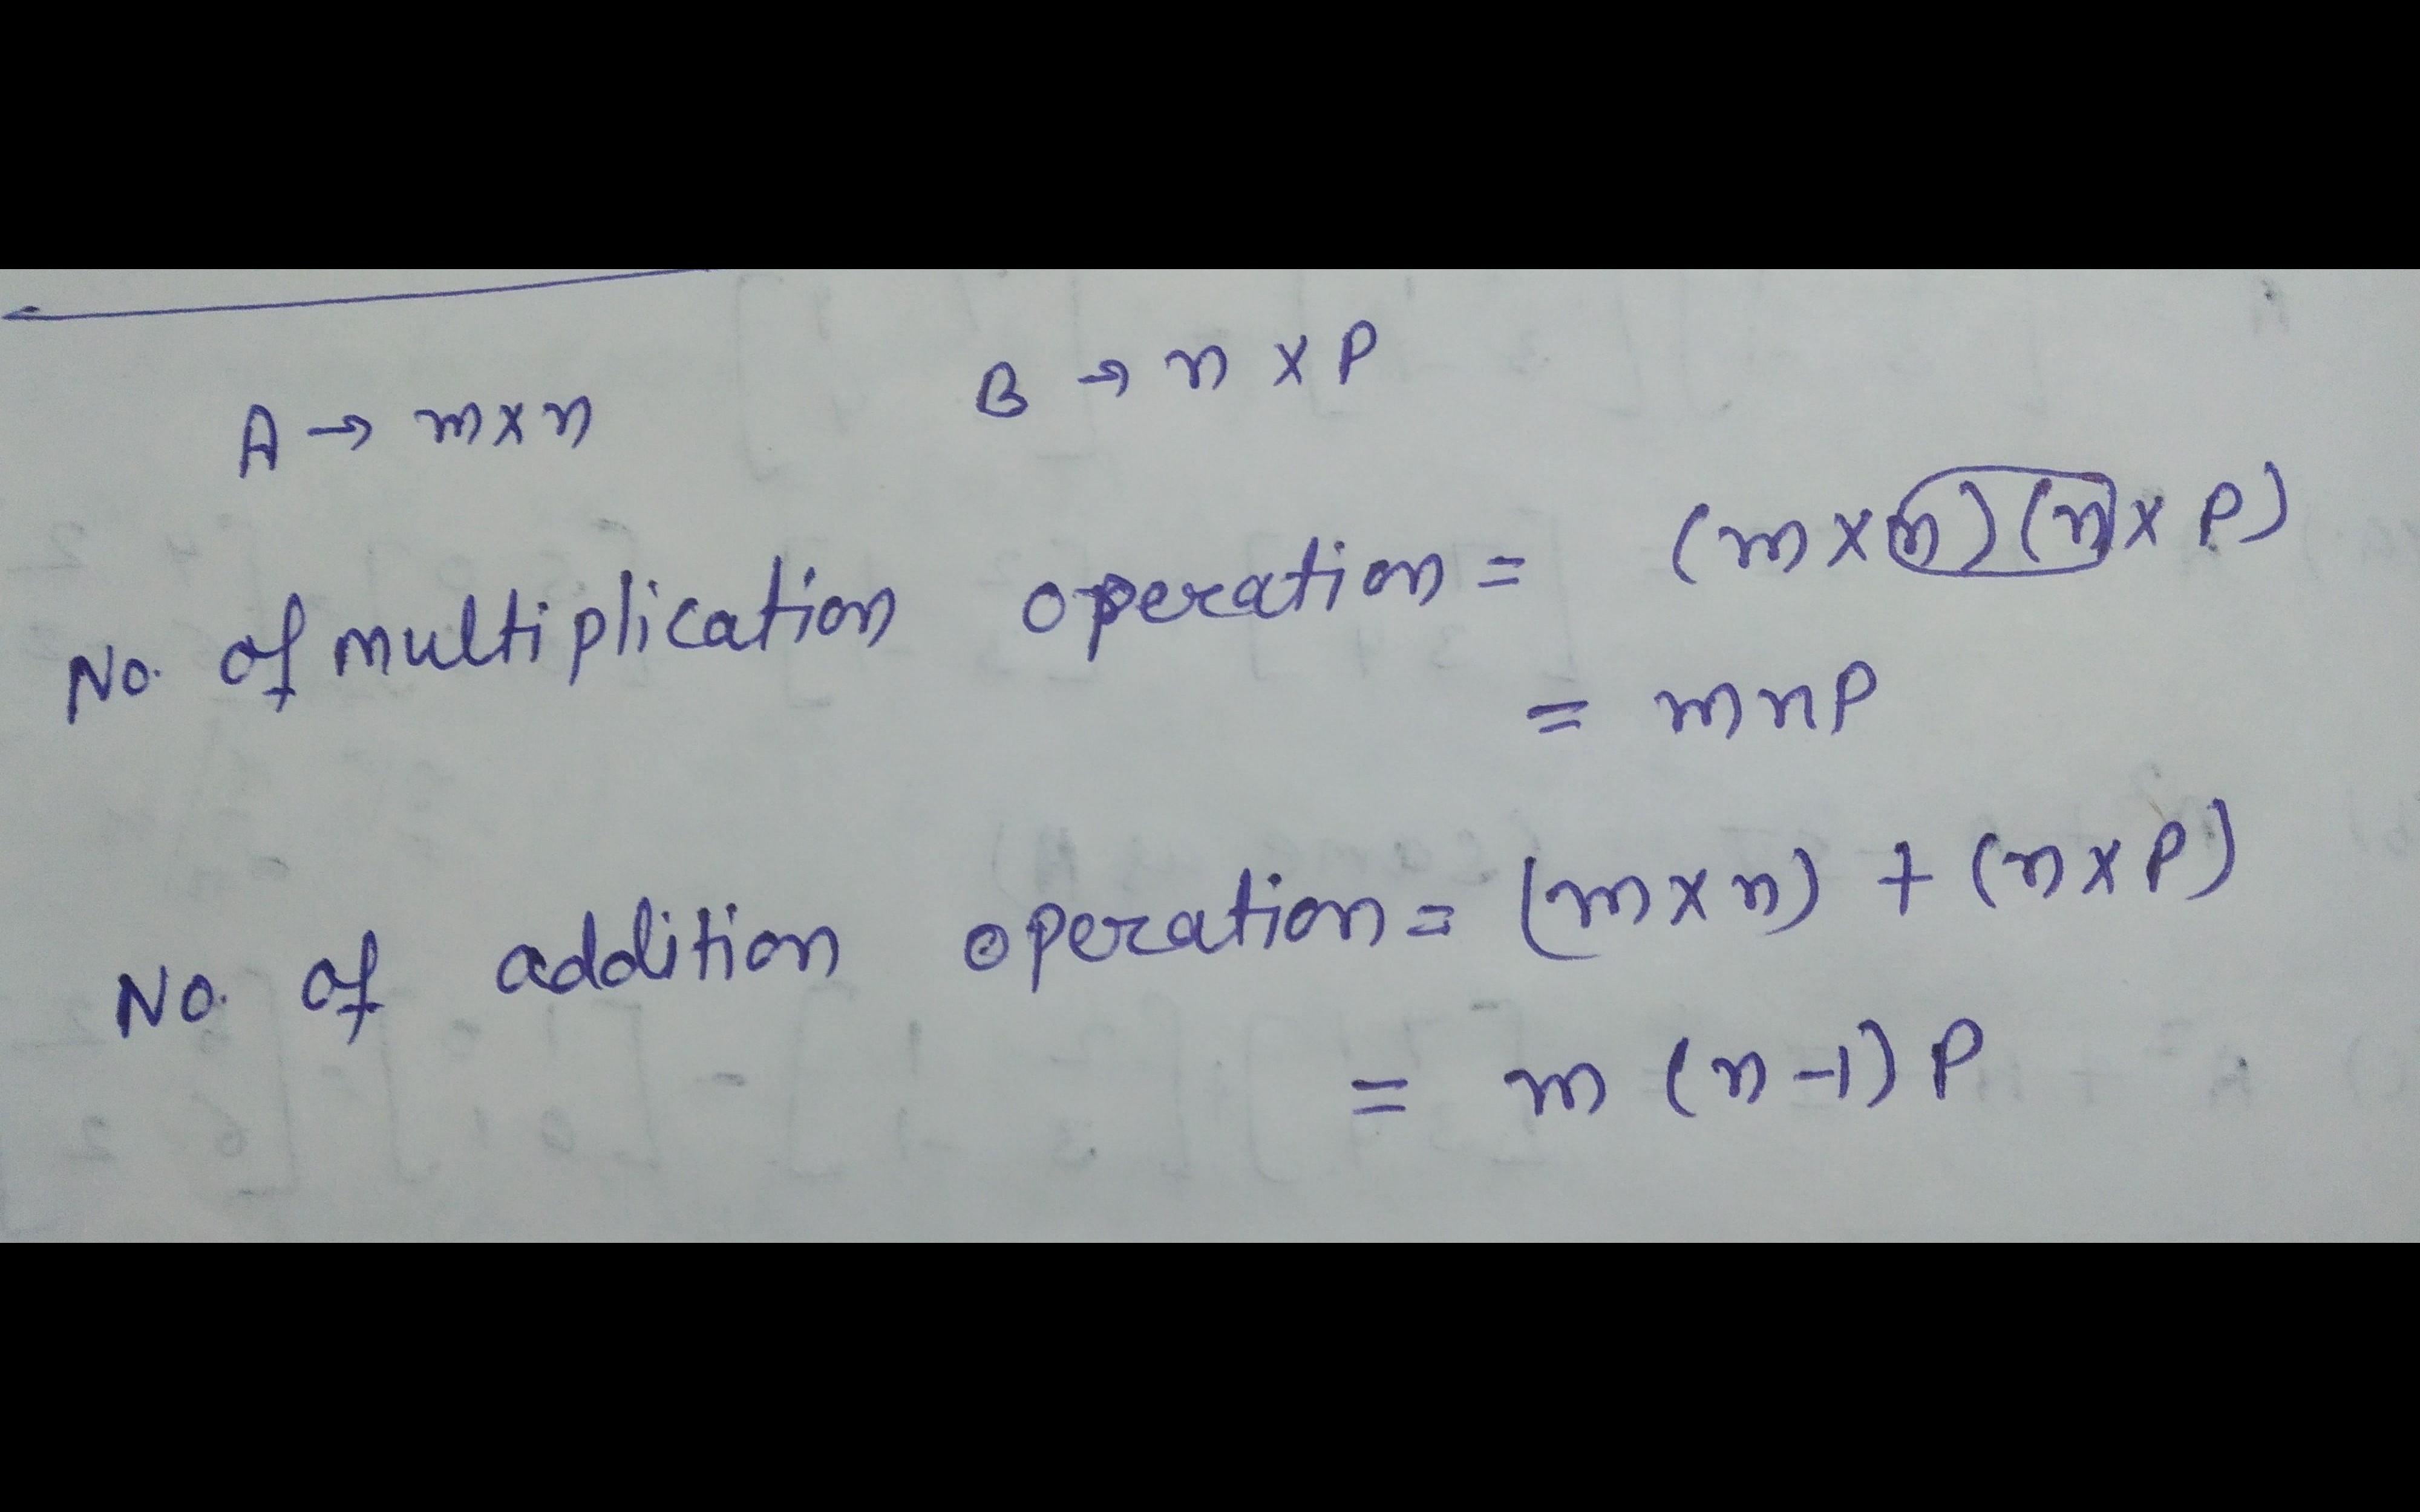 A → m×n B → n × P
No. of multiplication operation = (m × n) (n × P)
= mnP
No. of addition operation = (m × n) + (n × P)
= m (n-1) P